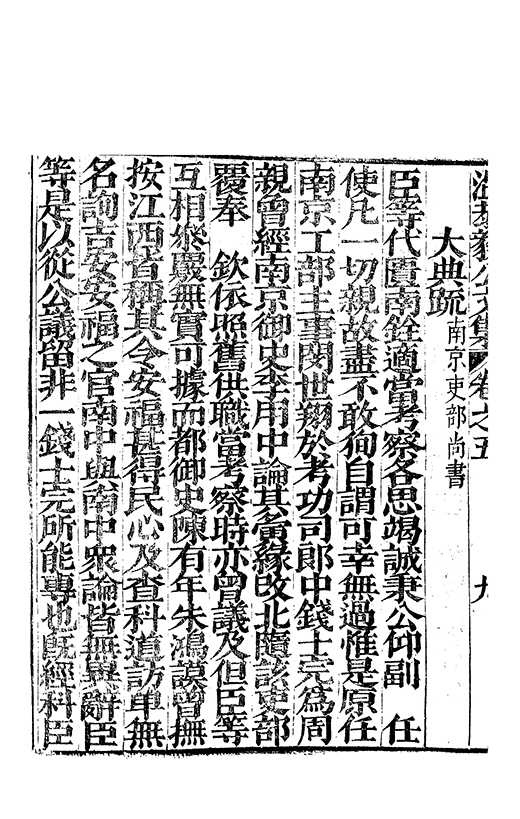 溫恭毅公文集 卷之五 九
大典疏 南京吏部尚書
臣等代匱南銓適當考察各思竭誠秉公仰副 任
使凡一切親故盡不敢狥自謂可幸無過惟是原任
南京工部主事閔世翔於考功司郎中錢士完為周
親曾經南京御史李用中論其夤緣改北隨該吏部
覆奉 欽依照舊供職當考察時亦曾議及但臣等
互相叅嚴無實可據而都御史陳有年朱鴻謨曾撫
按江西皆稱其令安福甚得民心及查科道訪單無
名詢吉安安福之官南中與南中眾論皆無異辭臣
等是以從公議留非一錢士完所能專也旣經科臣